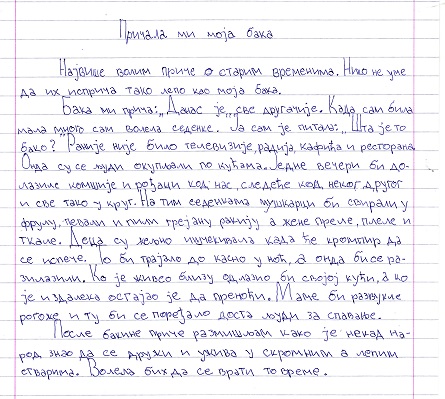 Причала ми моја бака
Највише волим приче о старим временима. Нико не уме
да их исприча тако лепо као моја бака.
Бака ми прича: „Данас је „све другачије. Када сам била
мала много сам волела седенке. Ја сам је питала: „Шта је то
бако? Раније није било телевизије, радија, кафића и ресторана.
Онда су се људи окупљали по кућама. Једне вечери би до-
лазиле комшије и рођаци код нас, следеће код неког другог
и све тако у круг. На тим седенкама мушкарци би свирали у
фрулу, певали и пили грејану ракију а жене преле, плеле и
ткале. Деца су жељно ишчекивала када ће кромпир да
се испече. То би трајало до касно у ноћ, а онда би се ра-
зилазили. Ко је живео близу одлазио би својој кући, а ко
је издалека остајао је да преноћи. Маме би развукле
рогоже и ту би се поређало доста људи за спавање.
После бакине приче размишљам како је некад на-
род знао да се дружи и ужива у скромним а лепим
стварима. Волела бих да се врати то време.